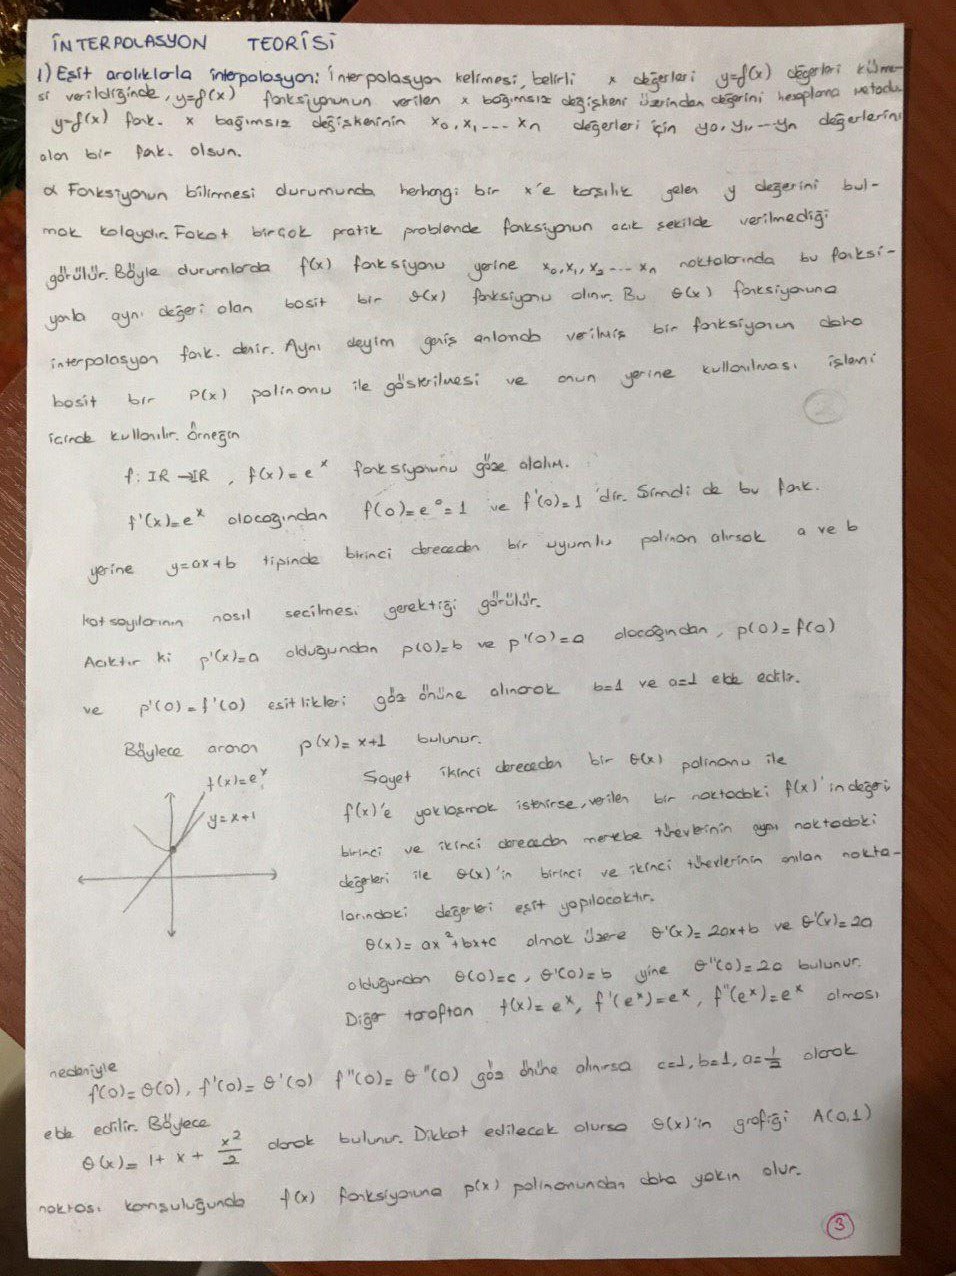 İNTERPOLASYON TEORİSİ
1) Eşit aralıklarla interpolasyon: İnterpolasyon kelimesi, belirli x değerleri y=f(x) değerleri küme-
si verildiğinde, y=f(x) fonksiyonunun verilen x bağımsız değişkeni üzerinden değerini hesaplama metodu.
y=f(x) fonk. x bağımsız değişkeninin x₀, x₁ --- xₙ değerleri için y₀, y₁, --- yₙ değerlerini
alan bir fonk. olsun.
α Fonksiyonun bilinmesi durumunda herhangi bir x'e karşılık gelen y değerini bul-
mak kolaydır. Fakat birçok pratik problemde fonksiyonun açık şekilde verilmediği
görülür. Böyle durumlarda f(x) fonksiyonu yerine x₀, x₁, x₂ --- xₙ noktalarında bu fonksi-
yonla aynı değeri olan basit bir θ(x) fonksiyonu alınır. Bu θ(x) fonksiyonuna
interpolasyon fonk. denir. Aynı deyim geniş anlamda verilmiş bir fonksiyonun daha
basit bir P(x) polinomu ile gösterilmesi ve onun yerine kullanılması işlemi
içinde kullanılır. Örneğin
f: IR→IR , f(x)=eˣ fonksiyonunu göze alalım.
f'(x)=eˣ olacağından f(0)=e⁰=1 ve f'(0)=1 'dir. Şimdi de bu fonk.
yerine y=ax+b tipinde birinci dereceden bir uyumlu polinom alırsak a ve b
katsayılarının nasıl seçilmesi gerektiği görülür.
Açıktır ki p'(x)=a olduğundan p(0)=b ve p'(0)=a olacağından, p(0)=f(0)
ve p'(0)=f'(0) eşitlikleri göz önüne alınarak b=1 ve a=1 elde edilir.
Böylece aranan p(x)=x+1 bulunur.
f(x)=eˣ
y=x+1
Şayet ikinci dereceden bir θ(x) polinomu ile
f(x)'e yaklaşmak istenirse, verilen bir noktadaki f(x)'in değeri
birinci ve ikinci dereceden mertebe türevlerinin aynı noktadaki
değerleri ile θ(x)'in birinci ve ikinci türevlerinin anılan nokta-
larındaki değerleri eşit yapılacaktır.
θ(x)=ax²+bx+c olmak üzere θ'(x)=2ax+b ve θ'(x)=2a
olduğundan θ(0)=c, θ'(0)=b yine θ''(0)=2a bulunur.
Diğer taraftan f(x)=eˣ, f'(eˣ)=eˣ, f''(eˣ)=eˣ olması
nedeniyle
f(0)=θ(0), f'(0)=θ'(0) f''(0)=θ''(0) göz önüne alınırsa c=1, b=1, a=1/2 olarak
elde edilir. Böylece
θ(x)=1+x+x²/2 olarak bulunur. Dikkat edilecek olursa θ(x)'in grafiği A(0,1)
noktası komşuluğunda f(x) fonksiyonuna p(x) polinomundan daha yakın olur.
3